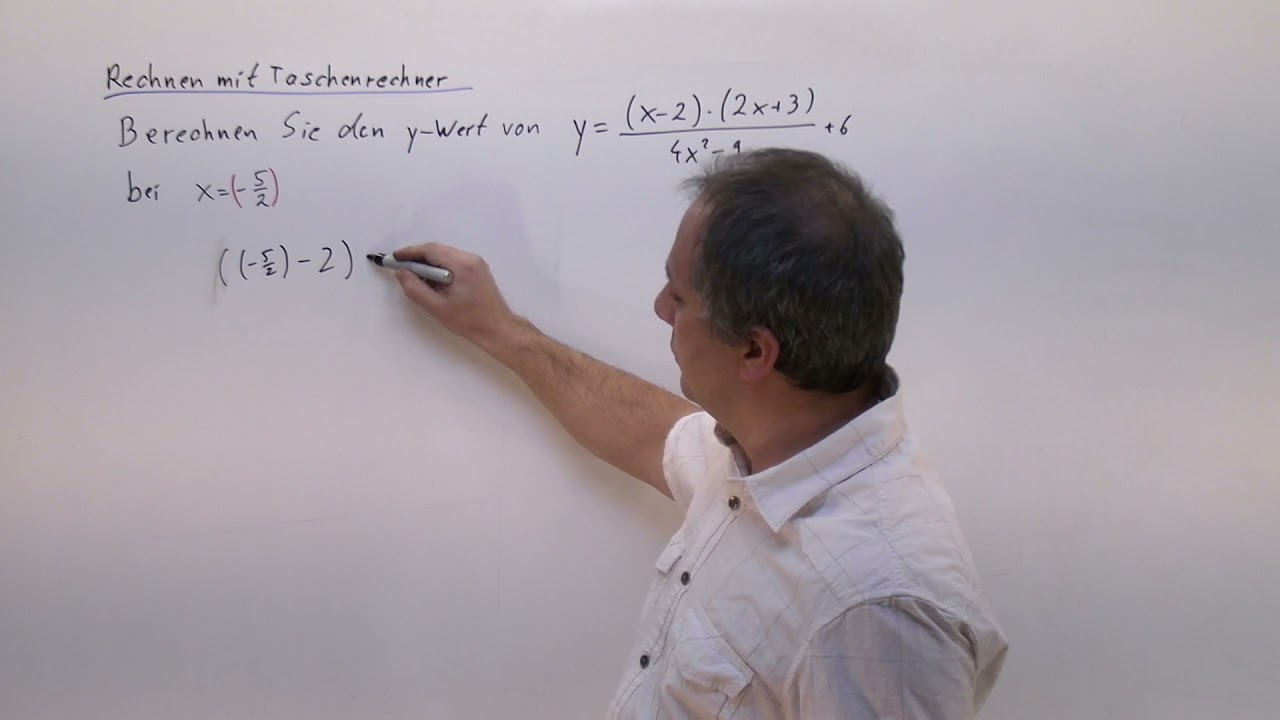 Rechnen mit Taschenrechner
Berechnen Sie den y-Wert von y = \frac{(x-2)·(2x+3)}{4x²-9} +6
bei x=(-\frac{5}{2})
((-\frac{5}{2})-2)